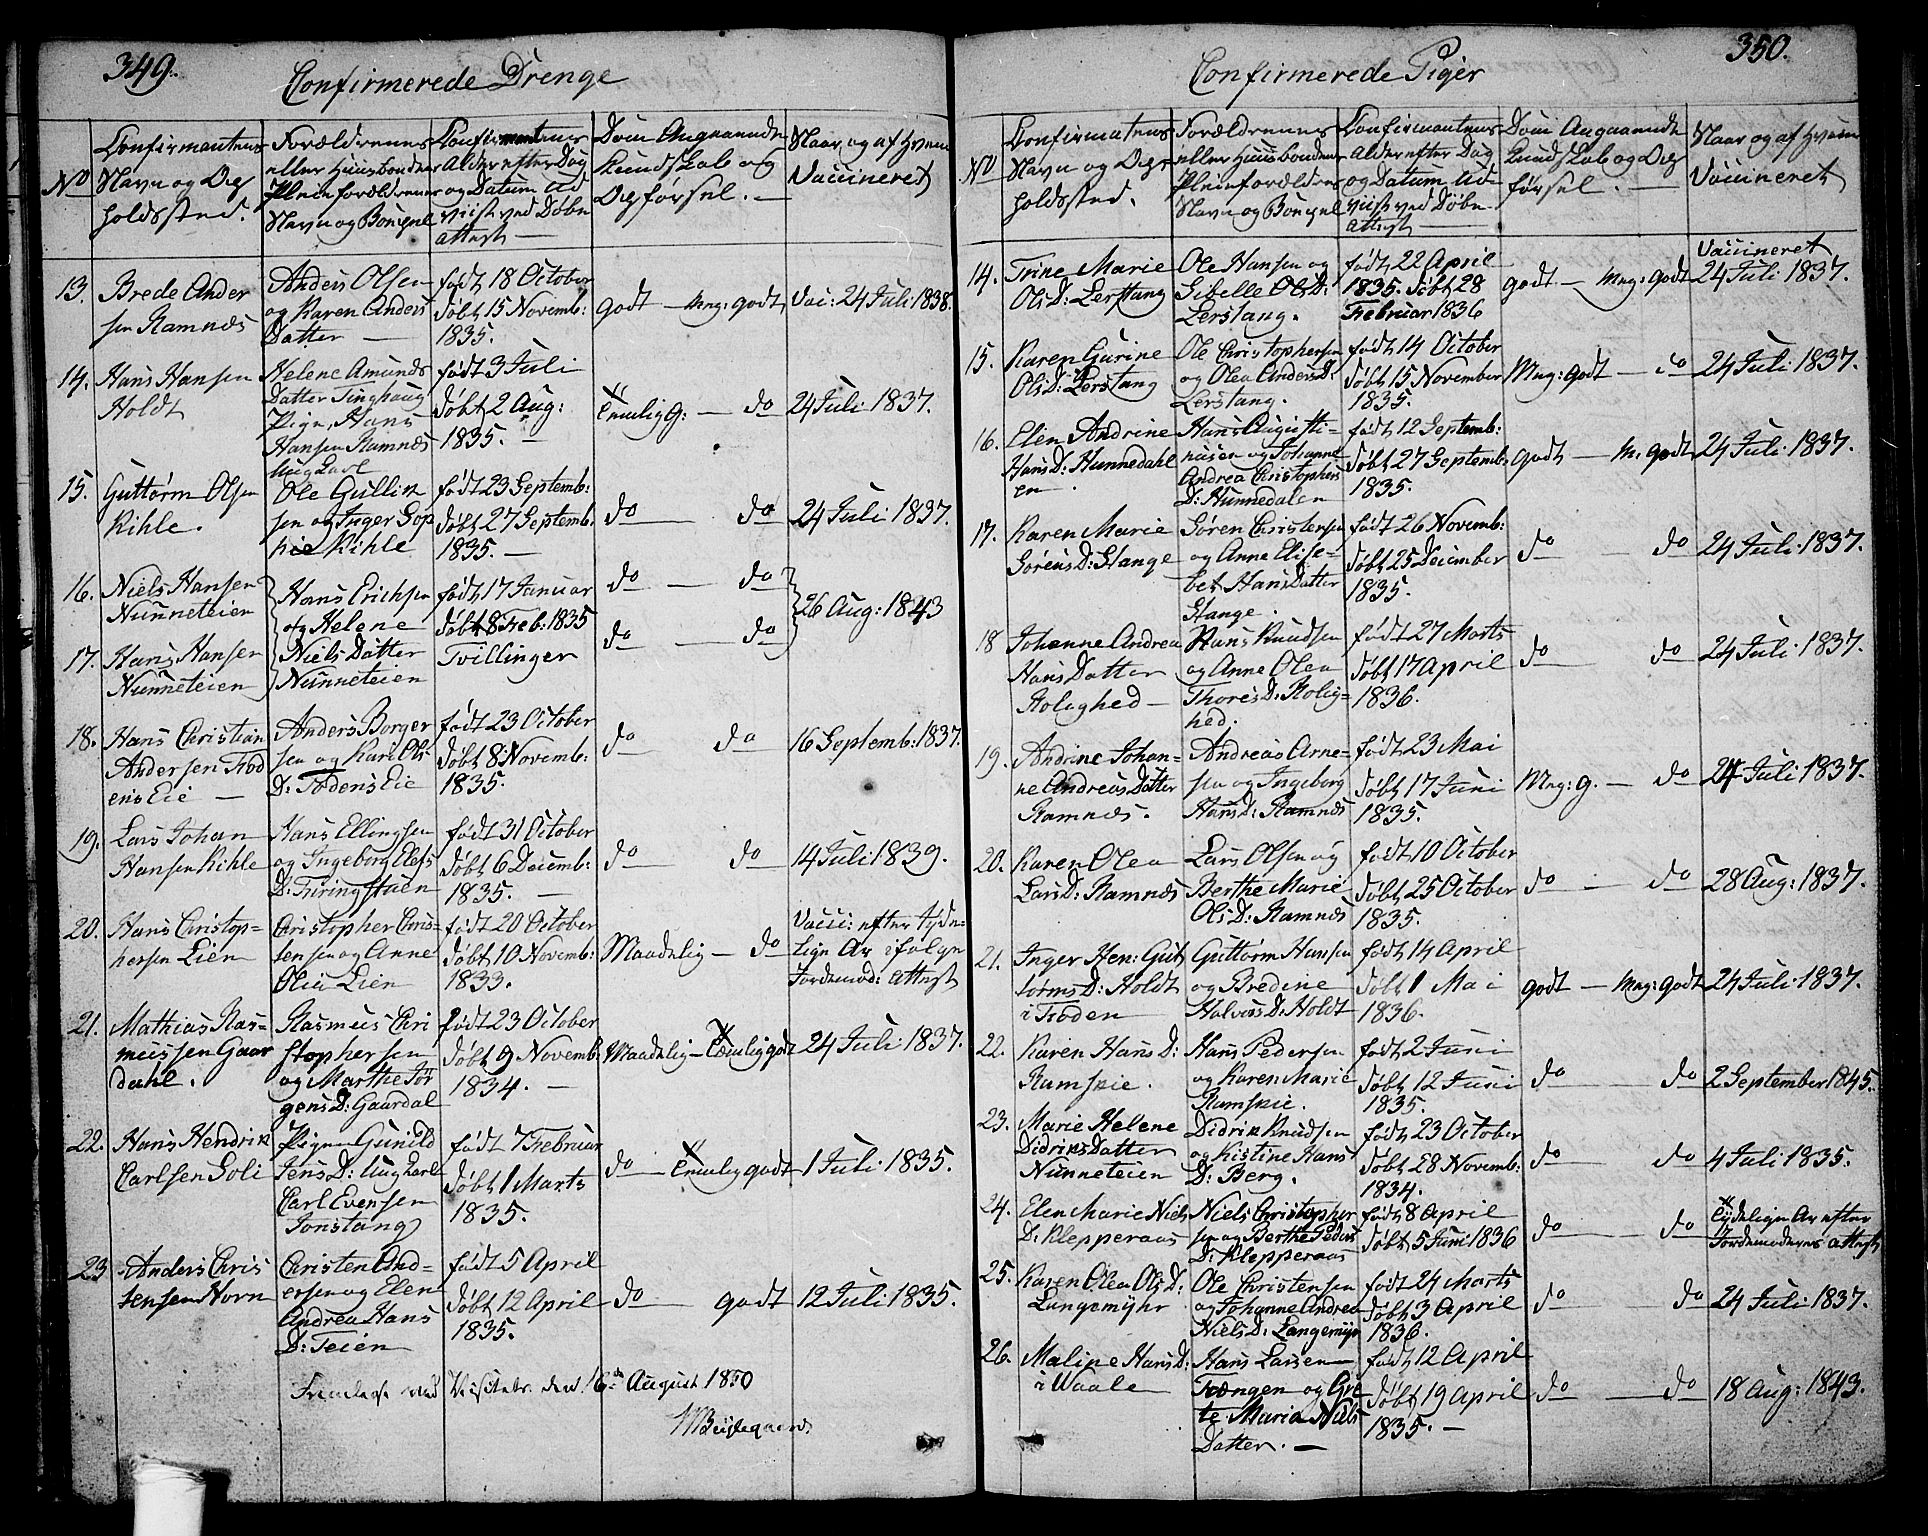 349.
Confirmerede Drenge
No
Confirmantens
Navn og Op-
holdssted.
Forældrenes
eller Huusbondens
Pleieforældrenes
Navn og Bopæl
Confirmantens
Alder efter Dag
og Datum ud-
viist ved Døbe
attest
Dom Angaaende
Kundskab og
Opførsel. —
Naar og af Hvem
Vaccineret
13. Brede Ander
sen Ramnæs
Anders Olsen
og Karen Anders
Datter —
født 18 October
døbt 15 Novemb:
1835.
godt — Mg: godt
Vac: 24 Juli 1838.
14. Hans Hansen
Holdt
Helene Amunds
Datter Tinghaug
Pige, Hans
Hansen Ramnæs
Ungkarl
født 3 Juli
døbt 2 Aug:
1835. —
Temlig g: — do
24 Juli 1837.
15. Guttorm Olsen
Kihle.
Ole Gullik
sen og Inger Sop
hie Kihle
født 23 Septemb:
døbt 27 Septemb:
1835. —
do — do
24 Juli 1837.
16. Niels Hansen
Nunneteien
17. Hans Hansen
Nunneteien
Hans Erichsen
og Helene
Niels Datter
Nunneteien
født 17 Januar
døbt 8 Feb: 1835
Tvillinger
do — do
do — do
26 Aug: 1843
18. Hans Christian
Andersen Fod
ens Eie —
Anders Borger
sen og Kari Ols
D: Fodens Eie
født 23 October
døbt 8 Novemb:
1835.
do do
16 Septemb: 1837.
19. Lars Johan
Hansen Kihle
Hans Ellingsen
og Ingeborg Elefs
D: Firingstuen
født 31 October
døbt 6 Decemb:
1835. —
do — do
14 Juli 1839.
20. Hans Christop-
hersen Lien
Christopher Chris-
tensen og Anne
Olea Lien
født 20 October
døbt 10 Novemb:
1833.
Maadelig — do
Vacci: efter tyde-
lige Ar ifølge
Jordemod: Attest
21. Mathias Ras-
mussen Gaar
dahl.
Rasmus Chri
stophersen
og Marthe Jør
gens D: Gaardal
født 23 October
døbt 9 Novemb:
1834. —
Maadelig — Temlig godt
24 Juli 1837.
22. Hans Hendrik
Carlsen Soli
Pigen Gunild
Jens D: Ungkarl
Carl Evensen
Jonstang
født 7 Februar
døbt 1 Marts
1835.
do — Temlig godt
1 Juli 1835.
23 Anders Chris
tensen Horn
Christen And-
ersen og Elen
Andrea Hans
D: Teien
født 5 April
døbt 12 April
1835.
do — godt
12 Juli 1835.
Fremlagt ved Visitats den 16de August 1850
350.
Confirmerede Piger
No
Confirmantens
Navn og Op-
holdssted.
Forældrenes
eller Huusbondens
Pleieforældrenes
Navn og Bopæl
Confirmantens
Alder efter Dag
og Datum ud-
viist ved Døbe-
attest —
Dom Angaaende
Kundskab og Op-
førsel. —
Naar og af Hvem
Vaccineret
14. Trine Marie
Ols D: Lerstang
Ole Hansen og
Sibelle Ols D:
Lerstang.
født 22 April
1835. døbt 28
Februar 1836
godt — Mg: godt
Vaccineret
24 Juli 1837.
15. Karen Gurine
Ols D: Lerstang
Ole Christophersen
og Olea Anders D:
Lerstang.
født 14 October
døbt 15 November
1835.
Mg: godt — do
24 Juli 1837.
16. Elen Andrine
Hans D: Hunnedahl
en.
Hans Augusti-
nusen og Johanne
Andrea Christophers
D: Hunnedalen
født 12 Septemb:
døbt 27 Septemb:
1835.
godt — M: godt
24 Juli 1837.
17. Karen Marie
Sørens D: Stange
Søren Christensen
og Anne Elise-
bet Hans Datter
Stange.
født 26 Novemb:
døbt 25 December
1835.
do — do
24 Juli 1837.
18 Johanne Andrea
Hans Datter
Rolighed —
Hans Knudsen
og Anne Olea
Thores D: Rolig-
hed.
født 27 Marts
døbt 17 April
1836.
do do
24 Juli 1837.
19. Andrine Johan-
ne Andreas Datter
Ramnæs.
Andreas Arne-
sen og Ingeborg
Hans D: Ramnæs
født 23 Mai
døbt 17 Juni
1835.
Mg: g. — do
24 Juli 1837.
20. Karen Olea
Lars D: Ramnæs
Lars Olsen og
Berthe Marie
Ols D: Ramnæs
født 10 October
døbt 25 October
1835.
do — do
28 Aug: 1837.
21. Inger Hen: Gut
torms D: Holdt
i Foden
Guttorm Hansen
og Bredine
Halvors D: Holdt
født 14 April
døbt 1 Mai
1836.
godt — Mg: godt
24 Juli 1837.
22. Karen Hans D:
Ramskie.
Hans Pedersen
og Karen Marie
Ramskie.
født 2 Juni
døbt 12 Juni
1835.
do — do
2 September 1845.
23. Marie Helene
Didriks Datter
Nunneteien
Didrik Knudsen
og Kistine Hans
D: Berg.
født 23 October
døbt 28 Novemb:
1834.
do — do
4 Juli 1835.
24. Elen Marie Niels
D: Klepperaas
Niels Christopher
sen og Berthe Peders
D: Klepperaas
født 8 April
døbt 5 Juni 1836
do — do
Tydelige Ar efter
Jordemoderens Attest
25. Karen Olea Ols D:
Langemyhr
Ole Christensen
og Johanne Andrea
Niels D: Langemyr
født 24 Marts
døbt 3 April
1836.
do — do
24 Juli 1837.
26. Maline Hans D:
i Waale
Hans Larsen
Fængen og Gre
te Maria Niels
Datter. —
født 12 April
døbt 19 April
1835. —
do — do
18 Aug: 1843.